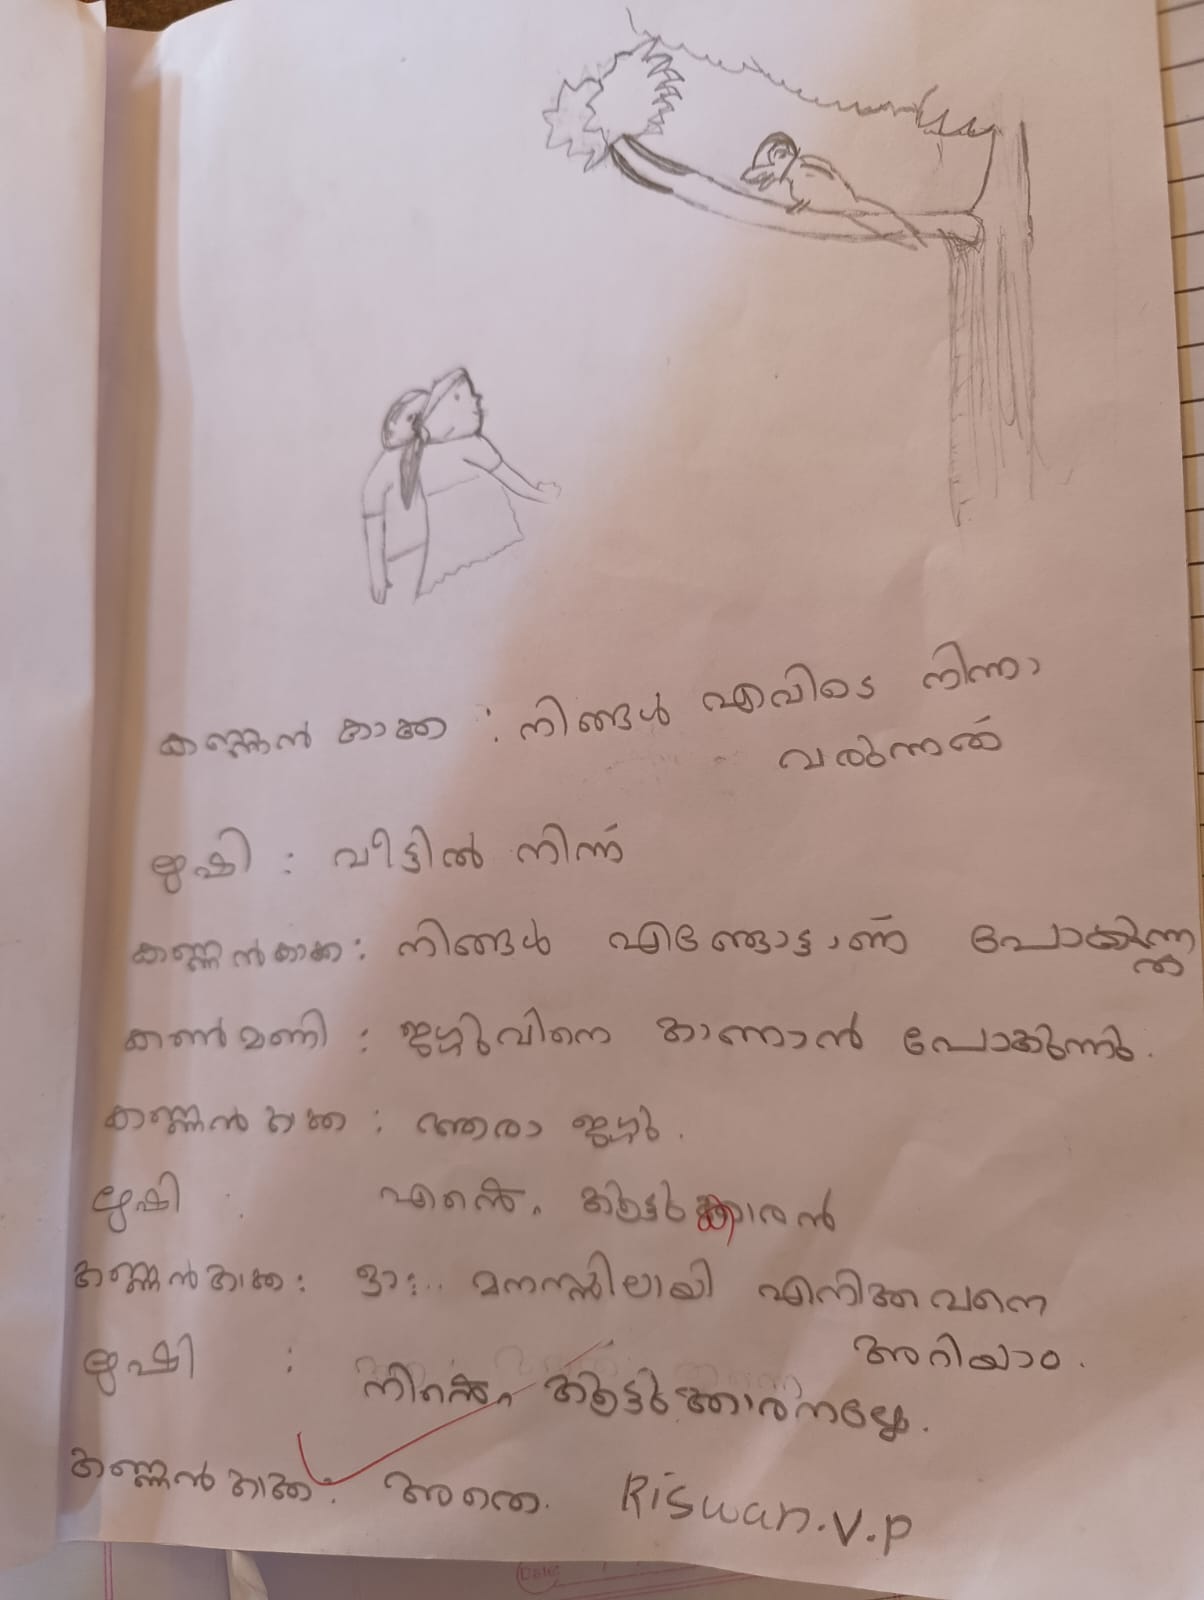 കണ്ണൻ കാക്ക : നിങ്ങൾ എവിടെ നിന്നാ
വരുന്നത്
ഋഷി : വീട്ടിൽ നിന്ന്
കണ്ണൻകാക്ക : നിങ്ങൾ എങ്ങോട്ടാണ് പോകുന്നത്
കൺമണി : ജഗ്ഗുവിനെ കാണാൻ പോകുന്നു.
കണ്ണൻ കാക്ക : ആരാ ജഗ്ഗു.
ഋഷി : എന്റെ കൂട്ടുക്കാരൻ
കണ്ണൻ കാക്ക : ഓ:.. മനസ്സിലായി എനിക്കവനെ
അറിയാം.
ഋഷി : നിന്റെ കൂട്ടുക്കാരനല്ലേ.
കണ്ണൻ കാക്ക : അതെ. Riswan.V.P
Date: